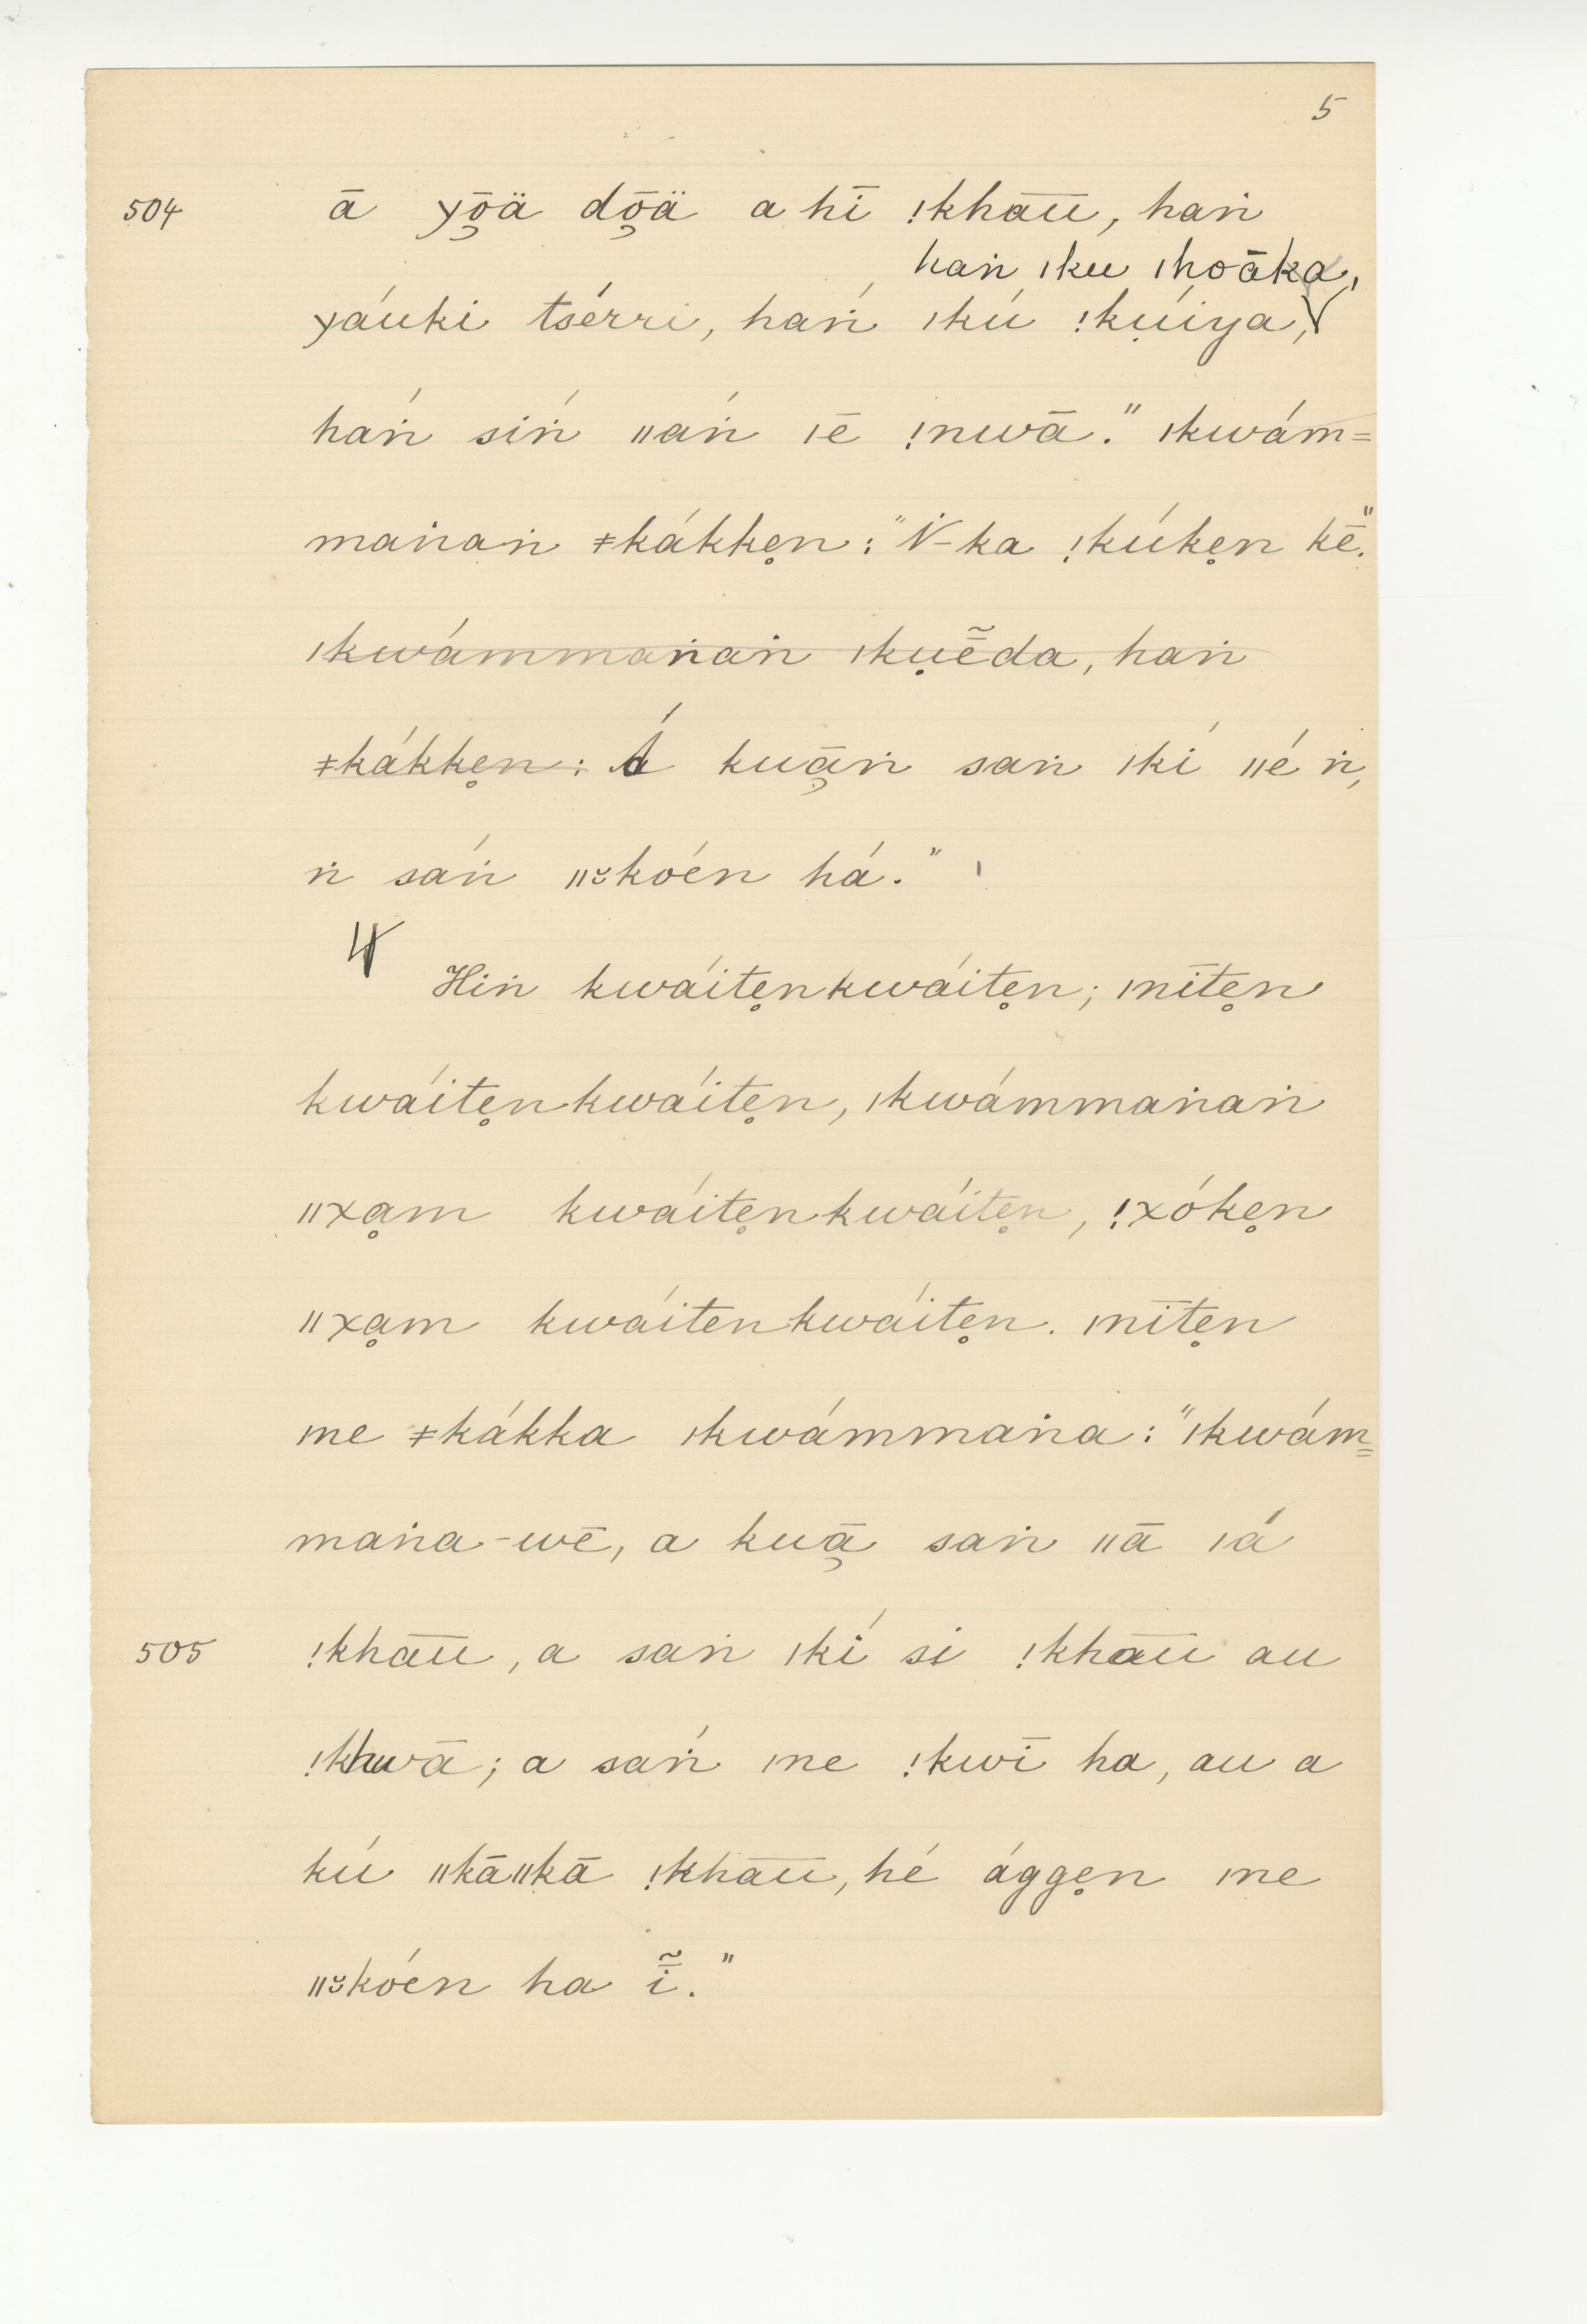 5
504 ā yō̱ä dō̱ä a hī !khāū, haṅ
haṅ ǀku ǀhoāka,
yáuki tsérri, háṅ ǀkú !kụíya,
háṅ síṅ ǁáṅ ǀē !nwā." ǀkwám=
maṅaṅ ǂkákkẹn: "Ṅ-ka !kúkẹn kē."
ǀkwámmaṅaṅ ǀkụē̃da, haṅ
ǂkákkẹn: Á kuā̱ṅ saṅ ǀkí ǁé ṅ,
ṅ sáṅ ǁ˘kóën há."
Hiṅ kwáitẹnkwáitẹn; ǀnītẹn
kwáitẹnkwáitẹn, ǀkwámmaṅaṅ
ǁxạm kwáitẹnkwáitẹn, !xókẹn
ǁxạm kwáitenkwáitẹn. ǀnītẹn
ǀne ǂkákka ǀkwámmaṅa: "ǀkwám=
maṅa-wē, a kuā̱ saṅ ǁā ǀā́
505 !khāū, a saṅ ǀkí si !khāū au
!khwā; a sáṅ ǀne !kwī ha, au a
kú ǁkāǁkā !khāū, hé ággẹn ǀne
ǁ˘kóën ha ī̃."